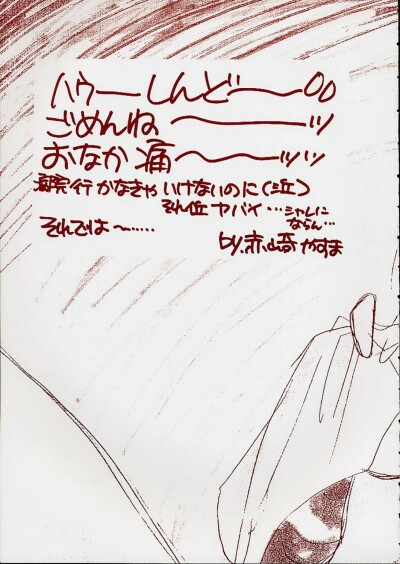 ハゥーしんどー〜〇〇
ごめんね〜〜ッ
おなか痛〜〜ッッ
行かなきゃいけないのに(泣)
ヤバイ…シャレに
ならん…
それでは〜……
by.赤山奇 やすま